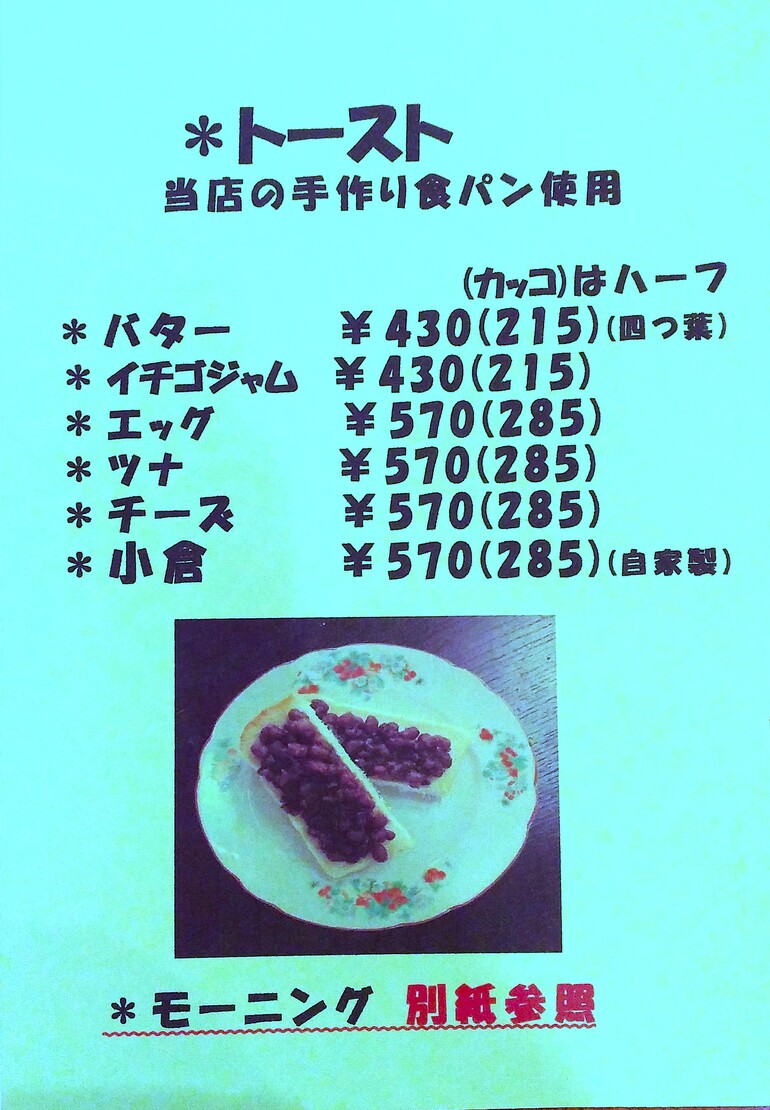 *トースト
当店の手作り食パン使用
(カッコ)はハーフ
* バター ¥430(215)(四つ葉)
* イチゴジャム ¥430(215)
* エッグ ¥570(285)
* ツナ ¥570(285)
* チーズ ¥570(285)
* 小倉 ¥570(285)(自家製)
* モーニング 別紙参照